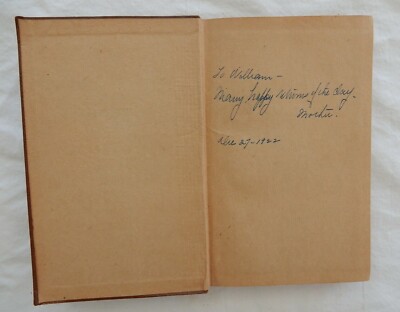 To William –
Many happy returns of the day.
Mother.
Dec 27–1922